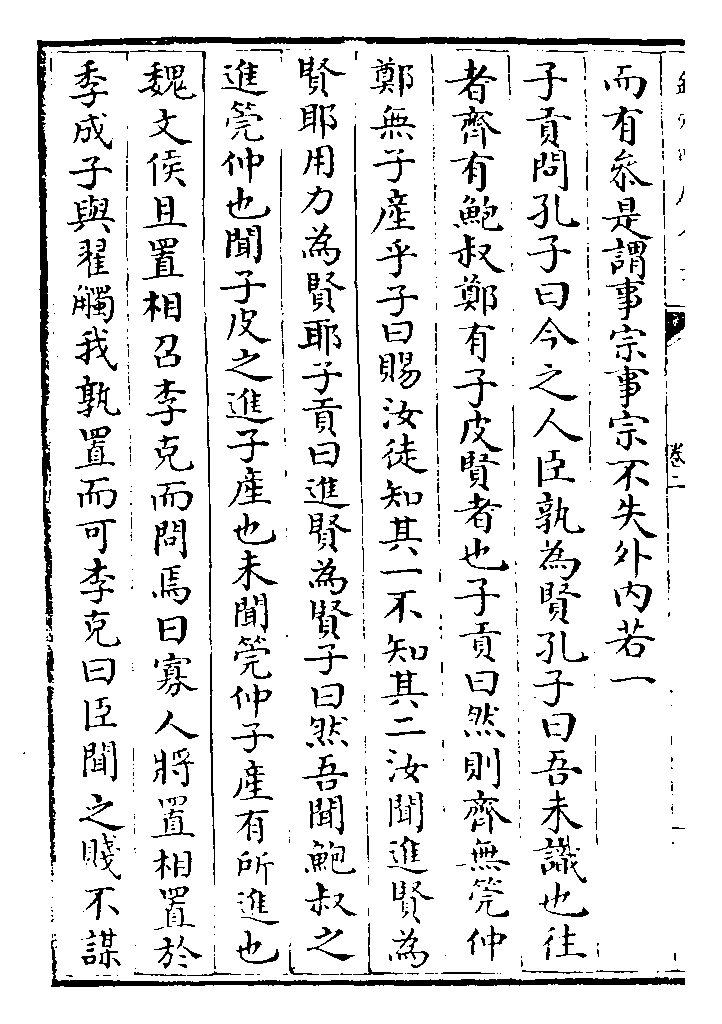 而有叅是謂事宗事宗不失外内若一
子貢問孔子曰今之人臣孰為賢孔子曰吾未識也往
者齊有鮑叔鄭有子皮賢者也子貢曰然則齊無筦仲
鄭無子產乎子曰賜汝徒知其一不知其二汝聞進賢為
賢耶用力為賢耶子貢曰進賢為賢子曰然吾聞鮑叔之
進筦仲也聞子皮之進子產也未聞筦仲子產有所進也
魏文侯且置相召李克而問焉曰寡人將置相置於
季成子與翟觸我孰置而可李克曰臣聞之賤不謀
卷二